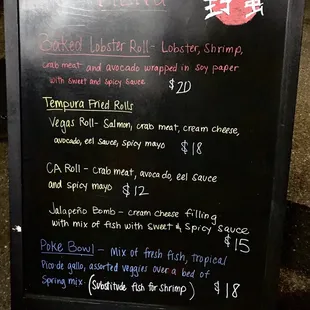 Baked Lobster Roll - Lobster, Shrimp,
crab meat and avocado wrapped in soy paper
with sweet and spicy sauce $20
Tempura Fried Rolls
Vegas Roll - Salmon, crab meat, cream cheese,
avocado, eel sauce, spicy mayo $18
CA Roll - crab meat, avocado, eel sauce
and spicy mayo $12
Jalapeño Bomb - cream cheese filling
with mix of fish with sweet & spicy sauce
$15
Poke Bowl - Mix of fresh fish, tropical
Pico de gallo, assorted veggies over a bed of
Spring mix (Substitute fish for Shrimp) $18